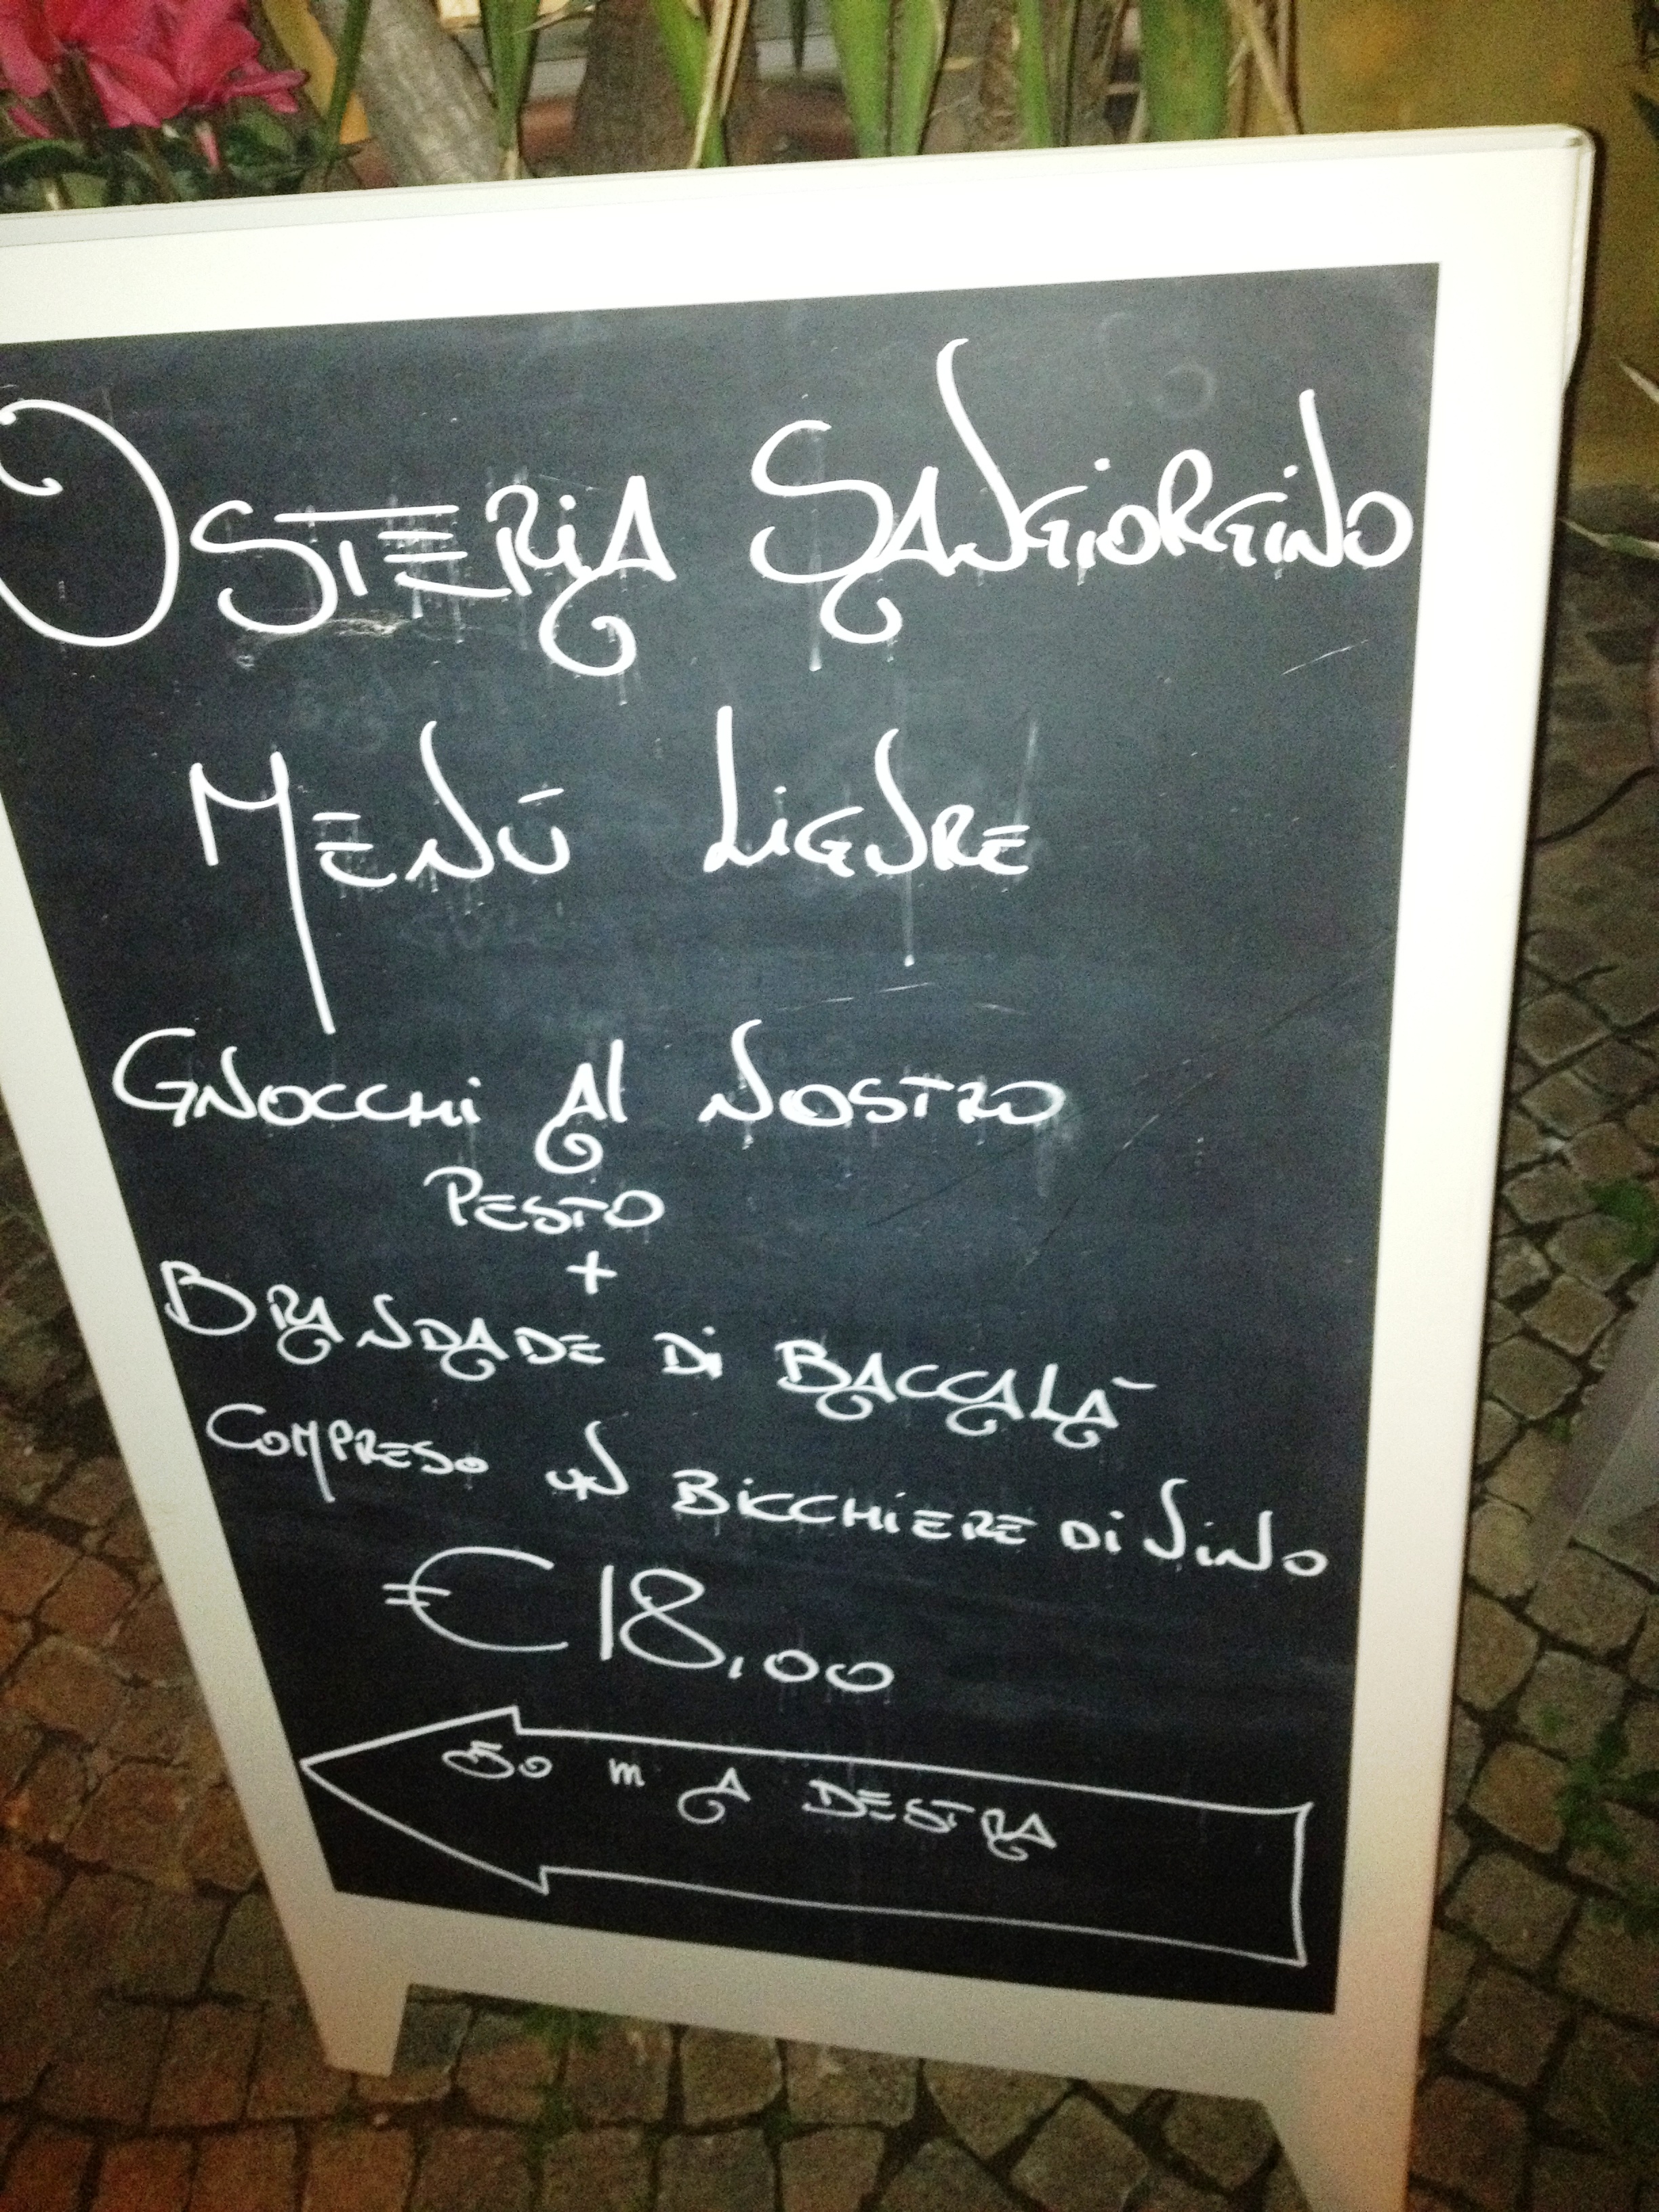 Osteria Sangiorgino
Menù Ligure
Gnocchi al nostro
pesto
+
Brandade di baccalà
compreso un bicchiere di vino
€18,00
50 m a destra